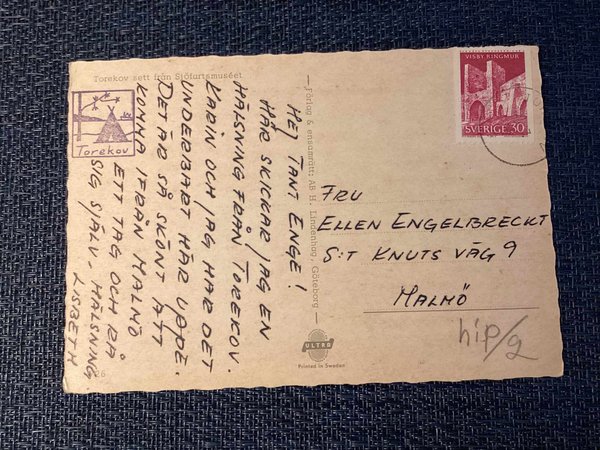 Torekov sett från Sjöfartsmuséet
Torekov
HEJ TANT ENGE!
HÄR SKICKAR JAG EN
HÄLSNING FRÅN TOREKOV.
KARIN OCH JAG HAR DET
UNDERBART HÄR UPPE.
DET ÄR SÅ SKÖNT ATT
KOMMA IFRÅN MALMÖ
ETT TAG OCH RÅ
SIG SJÄLV. HÄLSNING
LISBETH
Förlag & ensamrätt: AB H. Lindenhag, Göteborg
VISBY RINGMUR
SVERIGE 30
FRU
ELLEN ENGELBRECKT
S:T KNUTS VÄG 9
MALMÖ
hip/2
ULTRA
Printed in Sweden